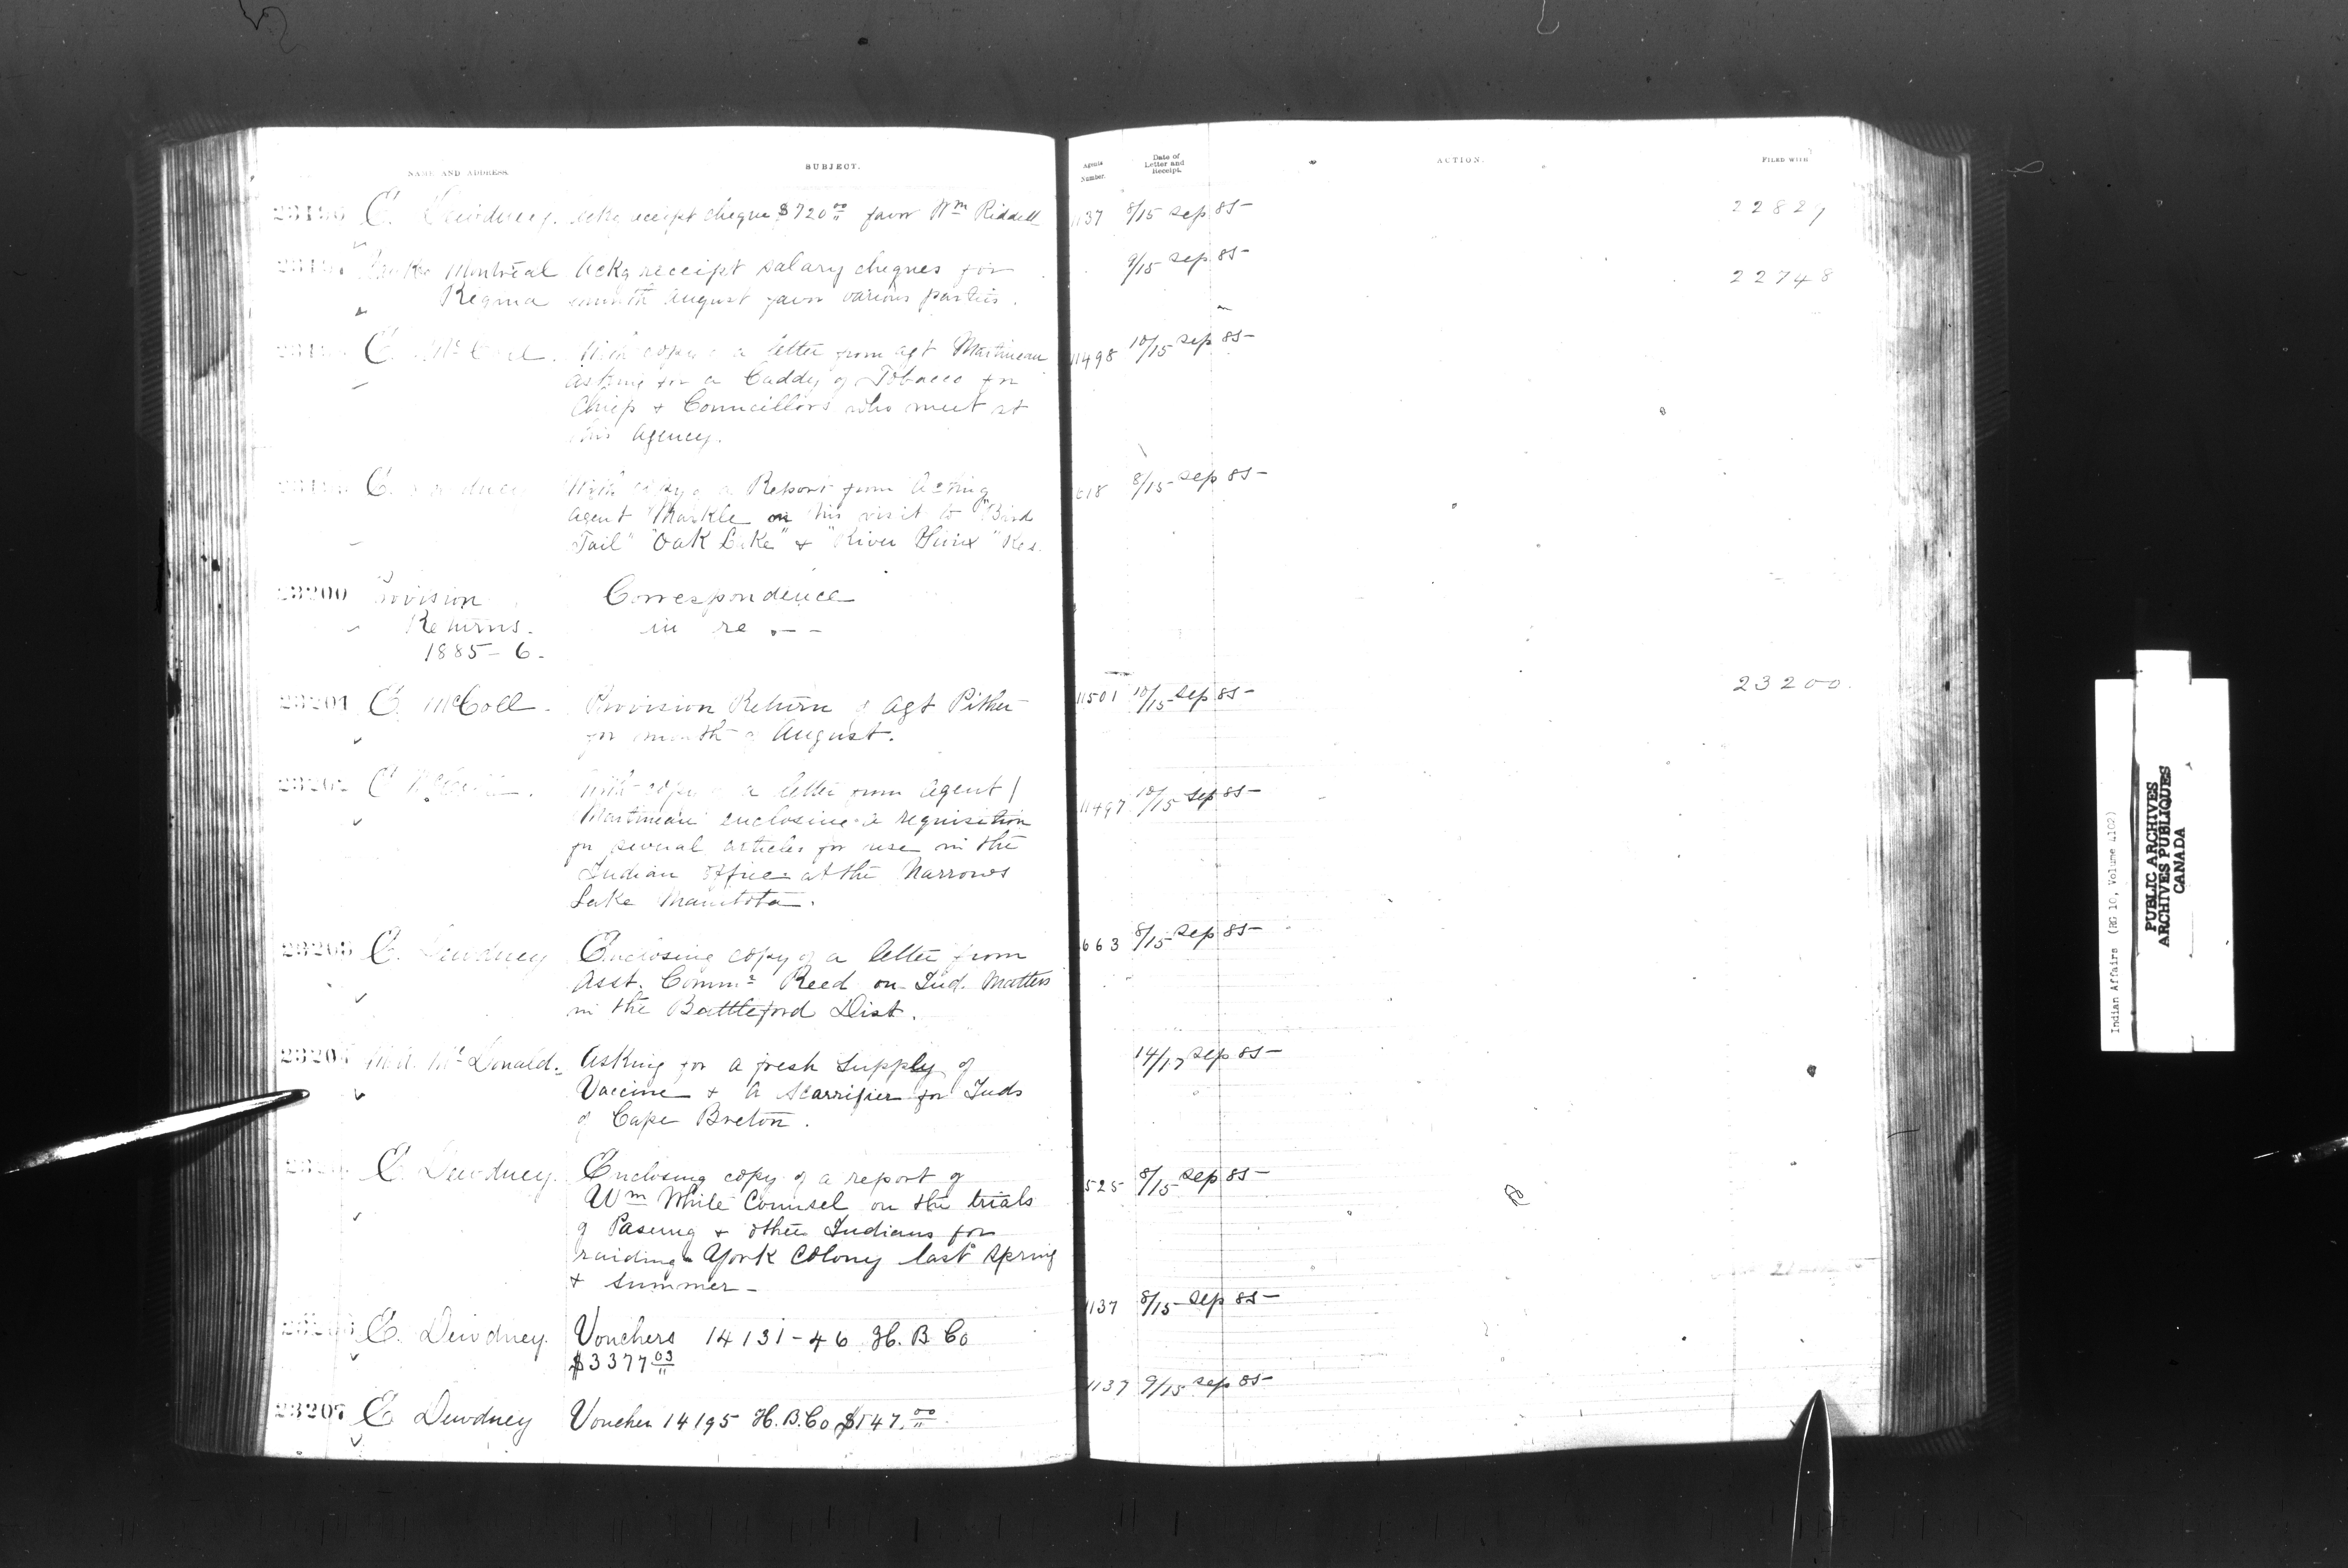 NAME AND ADDRESS.
SUBJECT.
Agents Number.
Date of Letter and Receipt.
ACTION.
FILED WITH
23196 E. Dewdney. Ackg receipt cheque $720 00/" favor Wm Riddell 1137 8/15 Sep 85- 22829
Montreal Ackg receipt salary cheques for 9/15 Sep 85- 22748
Regina month August favor various parties.
E. McColl. With copy of a letter from agt Martineau 11498 10/15 Sep 85-
asking for a Caddy of Tobacco for
Chiefs + Councillors who meet at
this Agency.
E. Dewdney With copy of a Report from Acting 618 8/15 Sep 85-
Agent Markle on his visit to "Bird
Tail" "Oak Lake" + "River Sioux" Res.
23200 Provision Correspondence
Returns. in re . - -
1885-6.
23201 E. McColl. Provision Return of Agt Pither 11501 10/15 Sep 85- 23200.
for month of August.
23202 E. McColl. With copy of a letter from Agent 11497 10/15 Sep 85-
Martineau enclosing a requisition
for several articles for use in the
Indian Office at the Narrows
Lake Manitoba.
23203 E. Dewdney Enclosing copy of a letter from 663 8/15 Sep 85-
Asst. Commr Reed on Ind. Matters
in the Battleford Dist.
23204 McDonald. Asking for a fresh supply of 14/17 Sep 85-
Vaccine + a Scarrifier for Inds
of Cape Breton.
E. Dewdney. Enclosing copy of a report of 525 8/15 Sep 85-
Wm White Counsel on the trials
of Paseung + other Indians for
raiding York Colony last spring
+ summer -
23206 E. Dewdney. Vouchers 14131-46 H. B Co 1137 8/15 Sep 85-
$3377 03/"
23207 E. Dewdney Voucher 14195 H.B.Co $147. 00/" 1137 9/15 Sep 85-
Indian Affairs (RG 10, Volume 4102)
PUBLIC ARCHIVES
ARCHIVES PUBLIQUES
CANADA